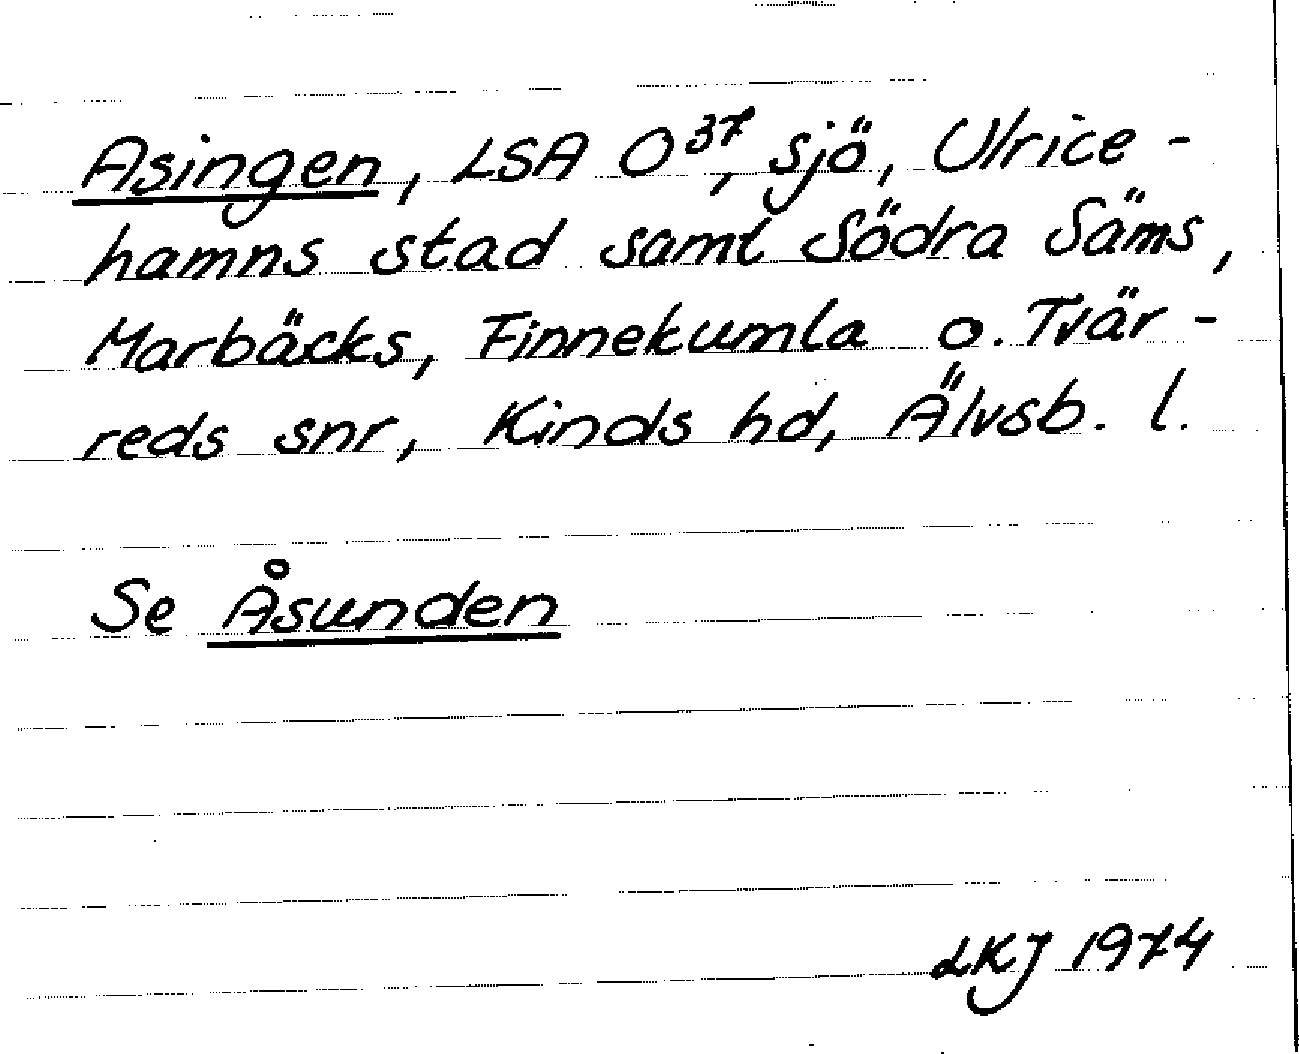 Asingen, LSA O 37, sjö, Ulrice-
hamns stad samt Södra Säms,
Marbäcks, Finnekumla o. Tvär-
reds snr, Kinds hd, Älvsb. l.
Se Åsunden
LKJ 1974